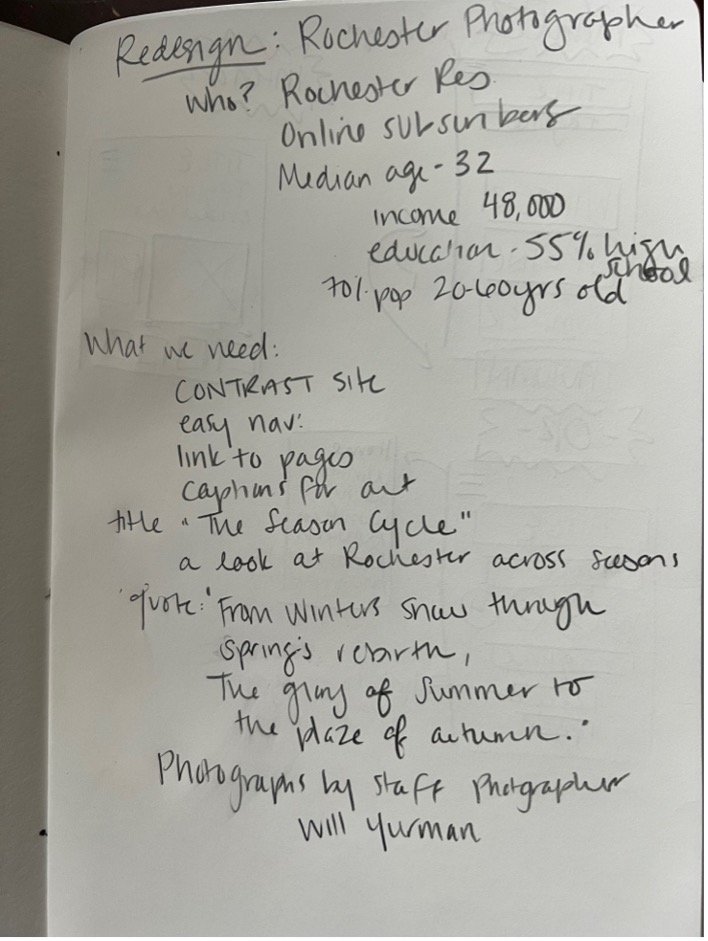 Redesign: Rochester Photographer
Who? Rochester Res.
Online subscribers
Median age - 32
income 48,000
education - 55% high school
70% pop 20-60yrs old
What we need:
CONTRAST site
easy nav:
link to pages
captions for art
title "The Season Cycle"
a look at Rochester across seasons
quote: "From Winters snow through
spring's rebirth,
The glory of summer to
the blaze of autumn."
Photographs by staff photgrapher
Will Yurman